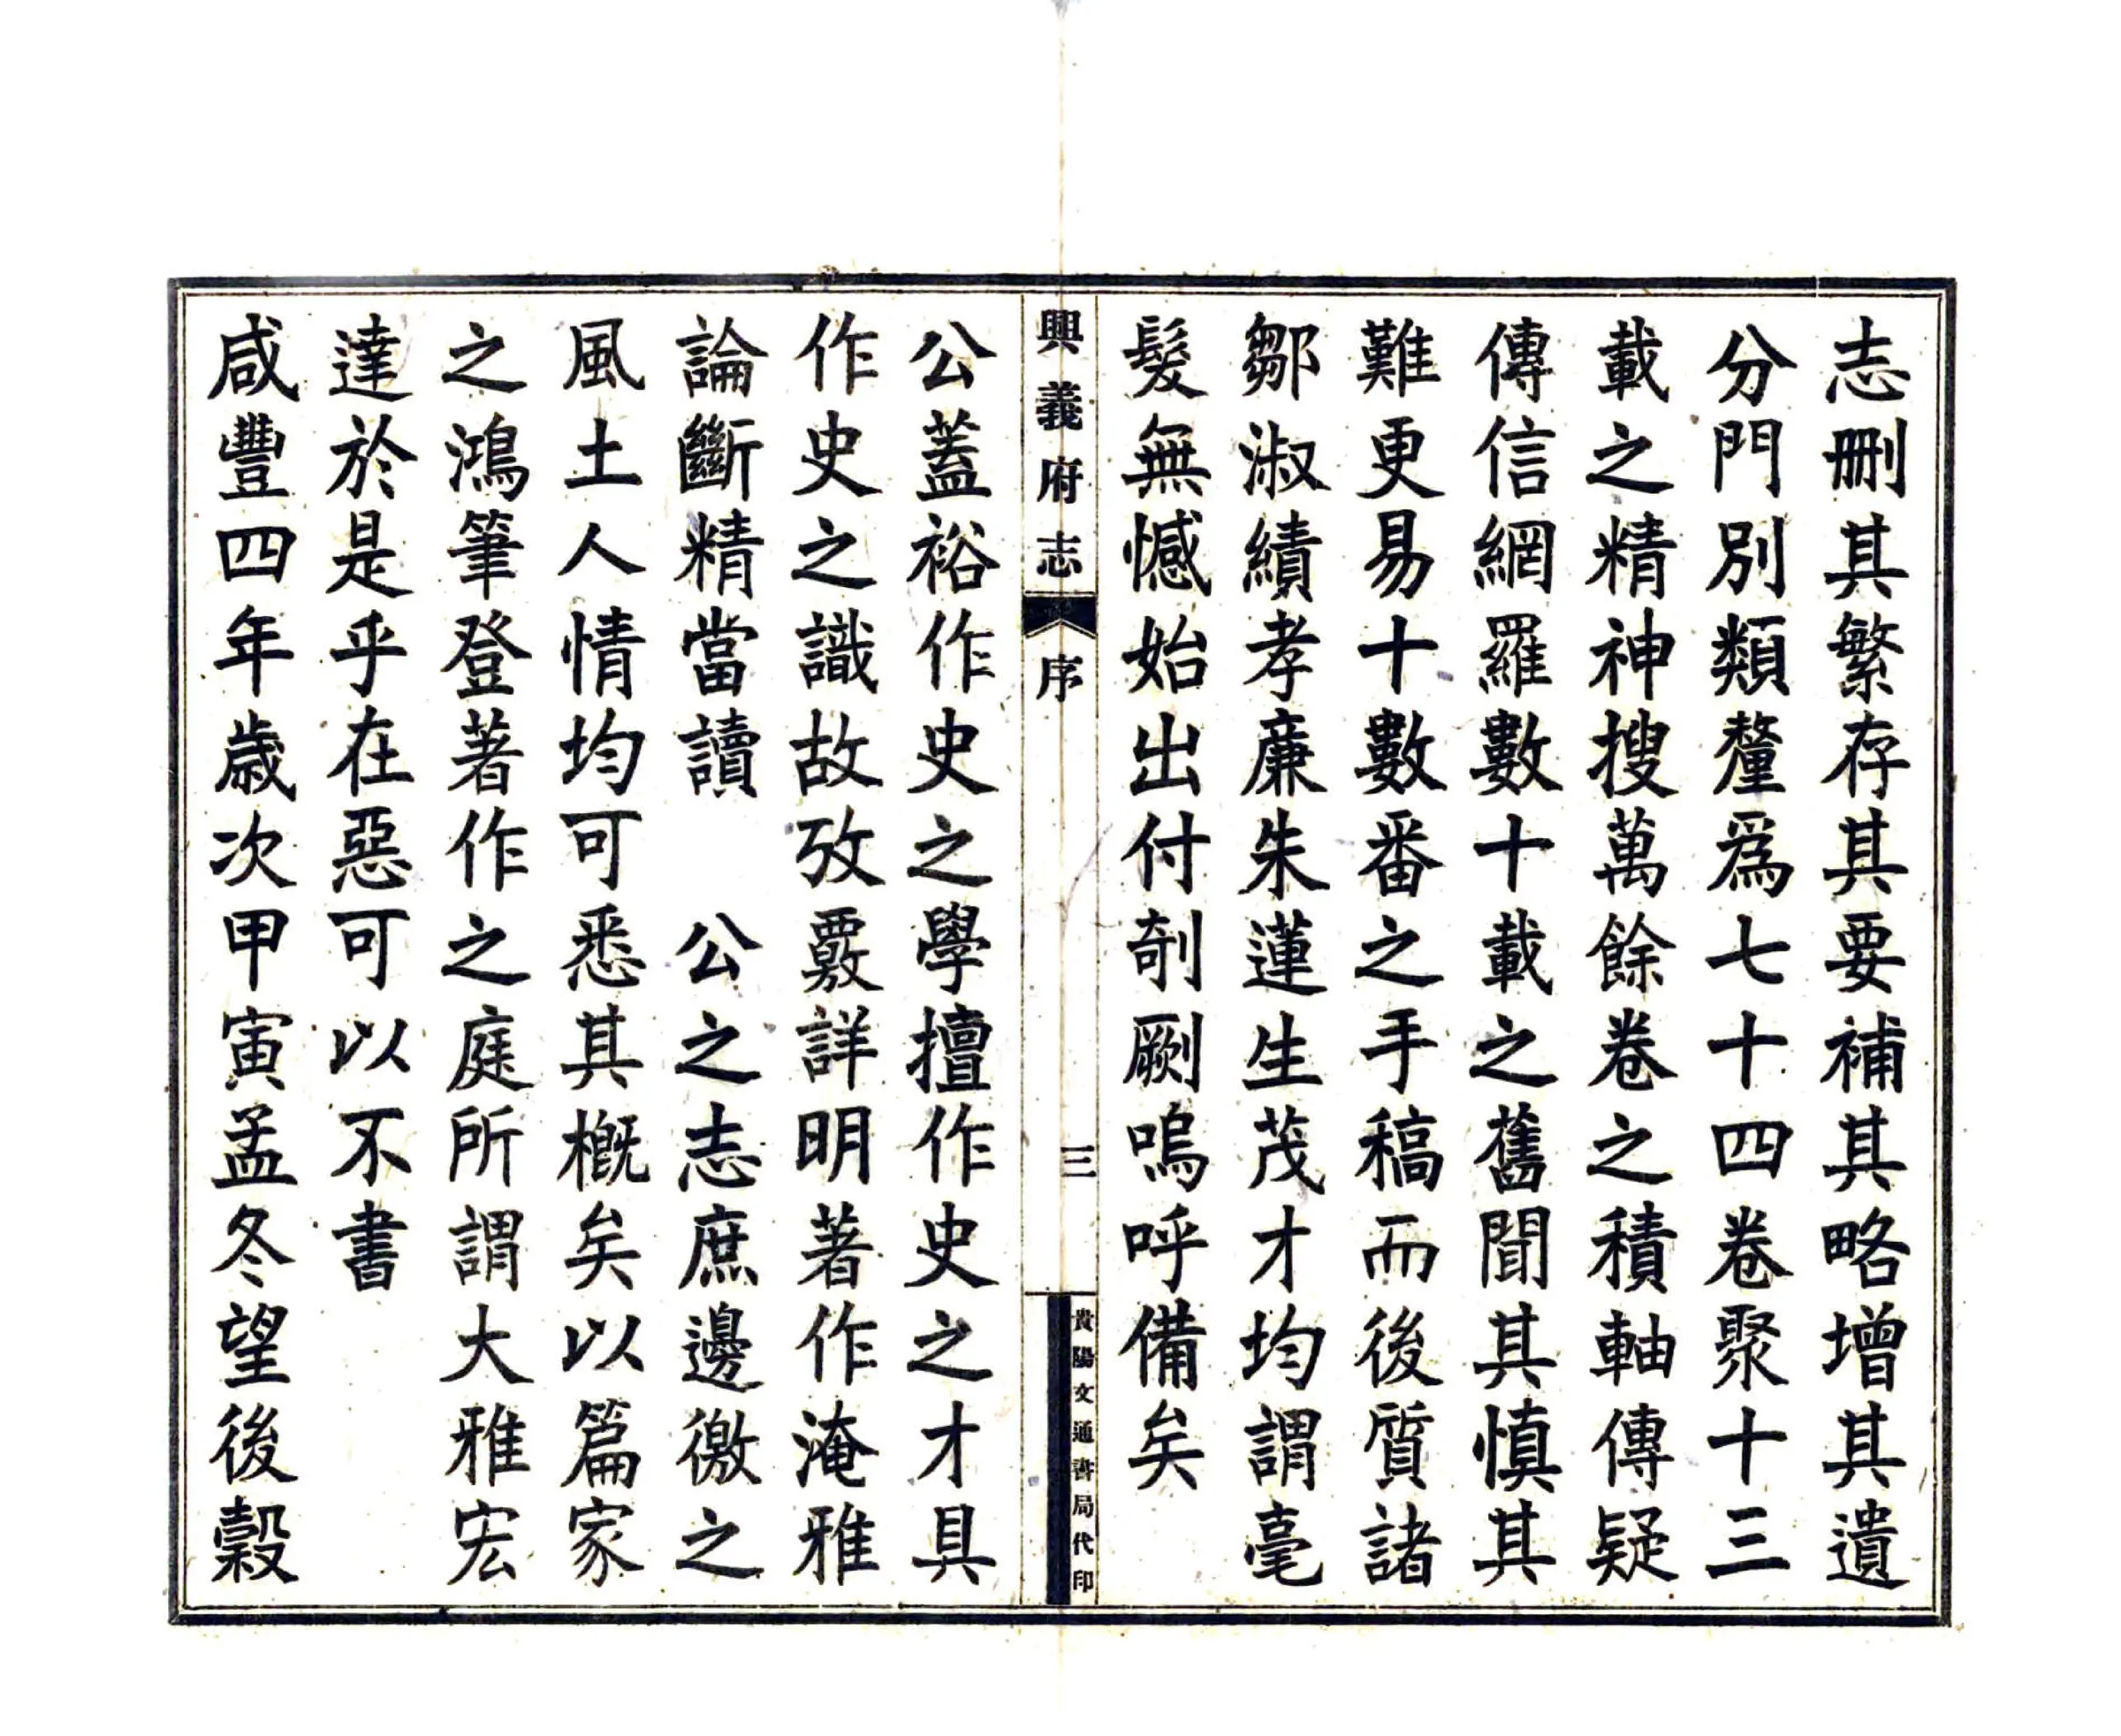 志刪其繁存其要補其略增其遺
分門別類釐爲七十四卷聚十三
載之精神搜萬餘卷之積軸傳疑
傳信網羅數十載之舊聞其慎其
難更易十數番之手稿而後質諸
鄒淑績孝廉朱蓮生茂才均謂毫
髮無憾始出付剞劂嗚呼備矣
興義府志
序
三
貴陽文通書局代印
公蓋裕作史之學擅作史之才具
作史之識故攷覈詳明著作淹雅
論斷精當讀　公之志庶邊徼之
風土人情均可悉其概矣以篇家
之鴻筆登著作之庭所謂大雅宏
達於是乎在惡可以不書
咸豐四年歲次甲寅孟冬望後穀